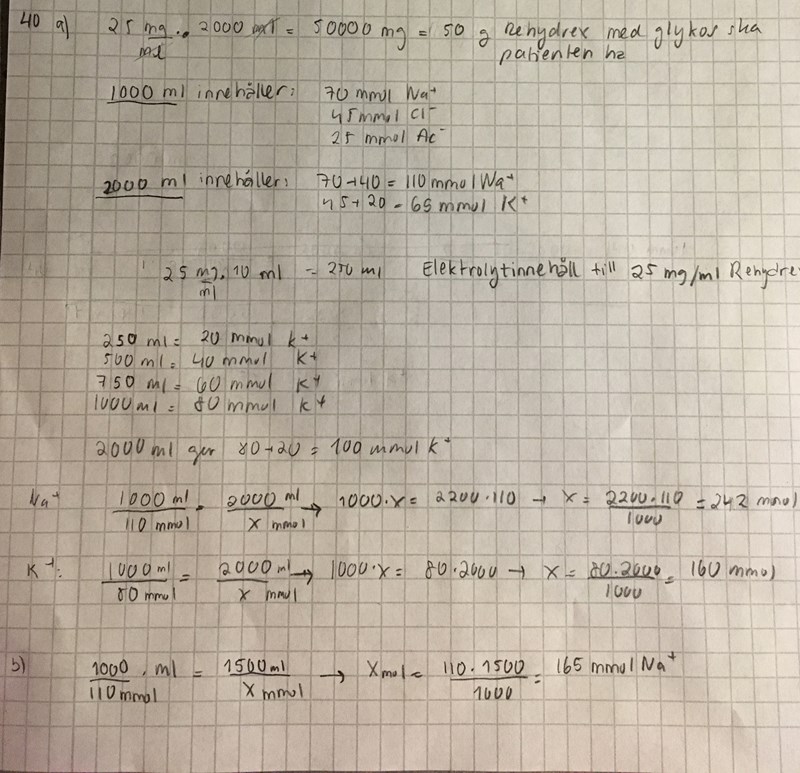 40 a) 25 mg/ml · 2000 ml = 50000 mg = 50 g Rehydrex med glykos ska
patienten ha
1000 ml innehåller: 70 mmol Na+
45 mmol Cl-
25 mmol Ac-
2000 ml innehåller: 70+40 = 110 mmol Na+
45+20 = 65 mmol K+
25 mg/ml · 10 ml = 250 ml Elektrolytinnehåll till 25 mg/ml Rehydre
250 ml = 20 mmol K+
500 ml = 40 mmol K+
750 ml = 60 mmol K+
1000 ml = 80 mmol K+
2000 ml ger 80+20 = 100 mmol K+
Na+ 1000 ml/110 mmol = 2000 ml/x mmol → 1000·x = 2200·110 → x = 2200·110/1000 = 242 mmol
K+: 1000 ml/80 mmol = 2000 ml/x mmol → 1000·x = 80·2000 → x = 80·2000/1000 = 160 mmol
b) 1000 · ml/110 mmol = 1500 ml/x mmol → x mol = 110·1500/1000 = 165 mmol Na+